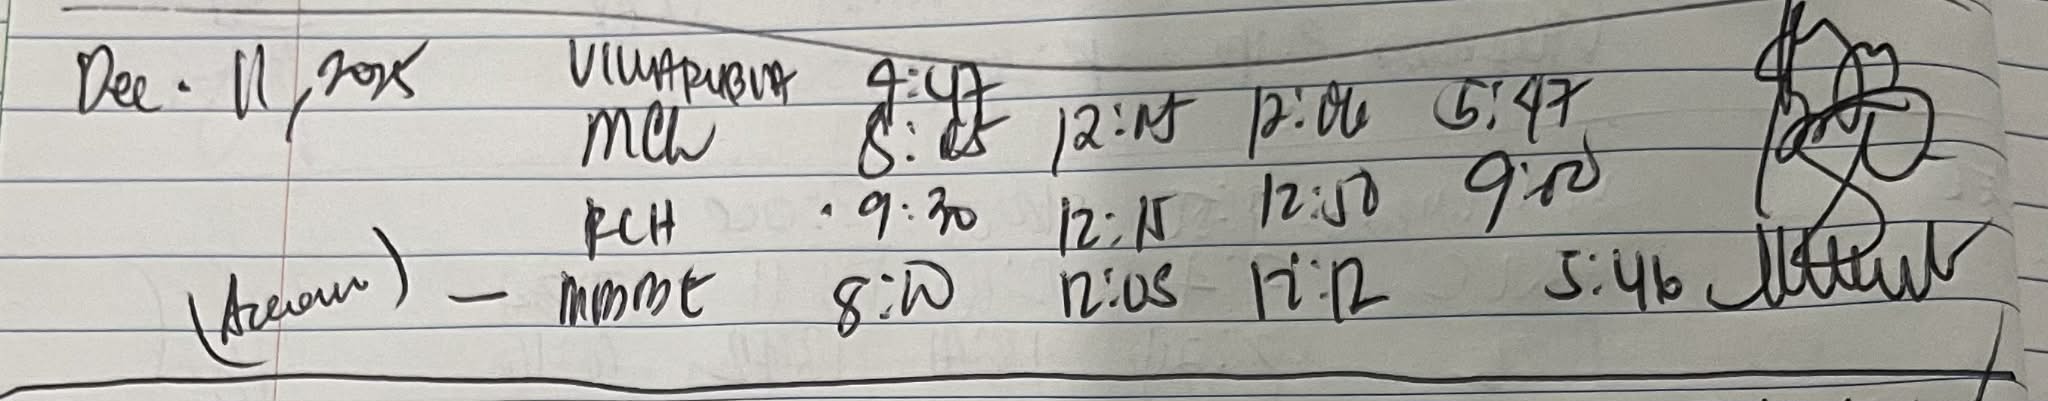 Dec. 11, 2025 VILLARUBIA 9:47
MCW 8:05 12:15 12:06 5:47
RCH 9:30 12:15 12:50 9:00
— MMME 8:20 12:05 12:12 5:46